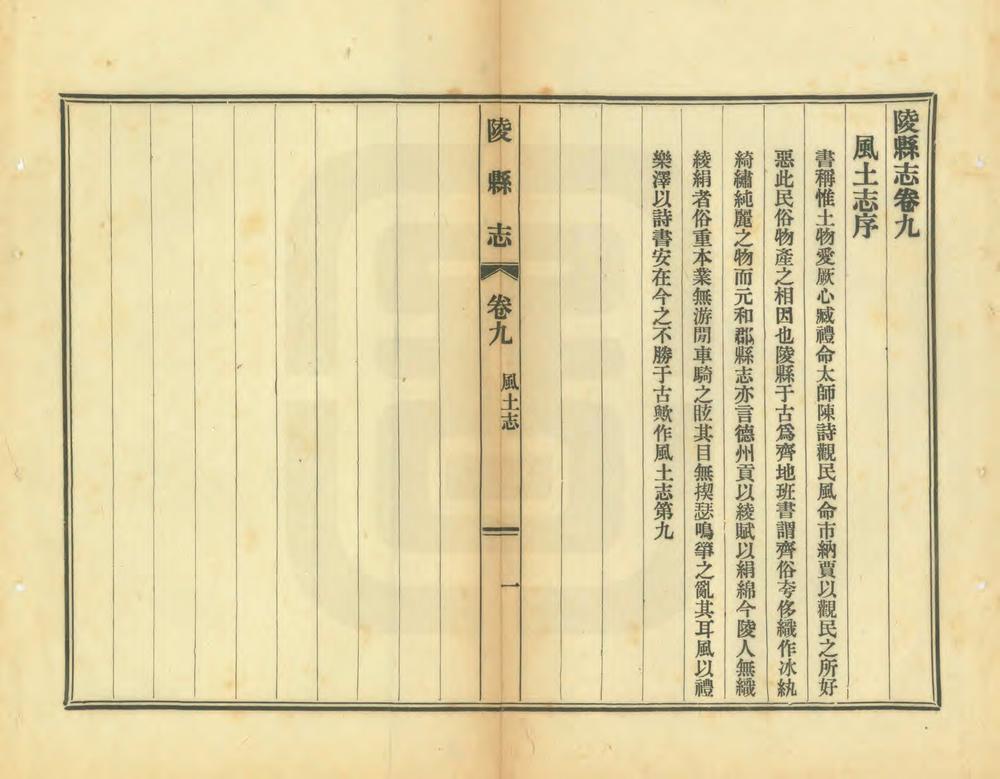 陵縣志卷九
風土志序
書稱惟土物愛厥心臧禮命太師陳詩觀民風命市納賈以觀民之所好
惡此民俗物產之相因也陵縣于古爲齊地班書謂齊俗夸侈織作冰紈
綺繡純麗之物而元和郡縣志亦言德州貢以綾賦以絹綿今陵人無織
綾絹者俗重本業無游閒車騎之眩其目無揳瑟鳴箏之亂其耳風以禮
樂澤以詩書安在今之不勝于古歟作風土志第九
陵縣志
卷九
風土志
一